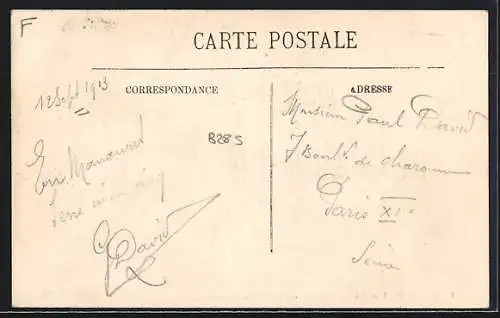 F
CARTE POSTALE
CORRESPONDANCE
ADRESSE
12 Sept 1913
B285
En
David
Monsieur Paul David
7 Boul. de Charonne
Paris XIe
Seine